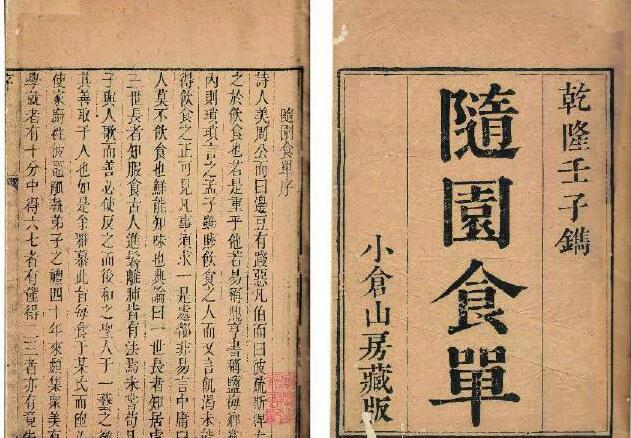 乾隆壬子鐫
隨園食單
小倉山房藏版
隨園食單序
詩人美周公而曰邊豆有踐惡凡伯而曰彼疏斯稗古
之於飲食也若是重乎他若易稱鼎亨書稱鹽梅鄉
內則瑣瑣言之孟子雖賤飲食之人而又言飢渴未
得飲食之正可見凡事須求一是處都非易言中庸曰
人莫不飲食也鮮能知味也典論曰一世長者知居處
三世長者知服食古人進鬐離肺皆有法焉未嘗苟
子與人歌而善必使反之而後和之聖人于一藝之微
其善取于人也如是余雅慕此旨每食于某氏而飽必
使家廚往彼竈觚執弟子之禮四十年來頗集眾美有
學就者有十分中得六七者有僅得二三者亦有竟失